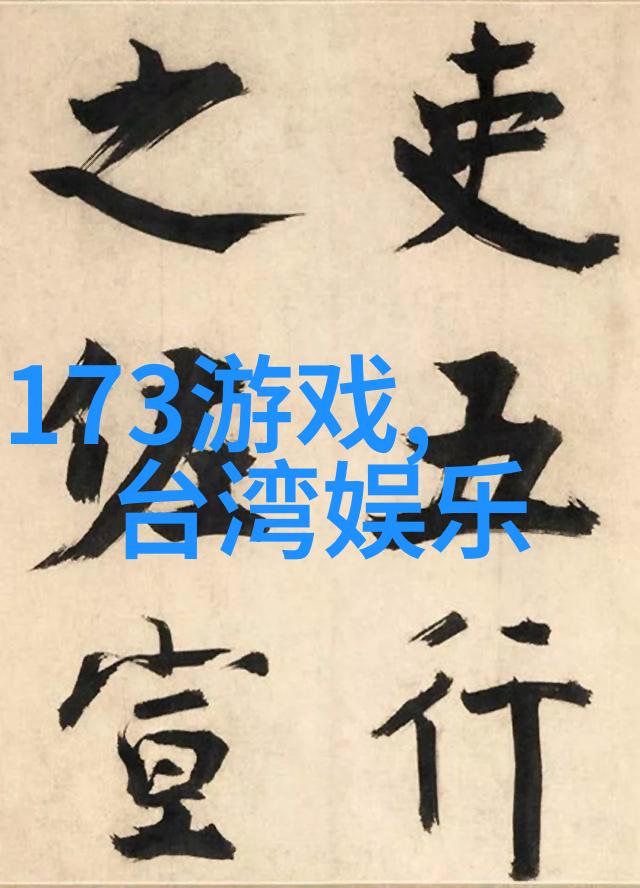 吏五行
之佐宣
173游戏,
台湾娱乐